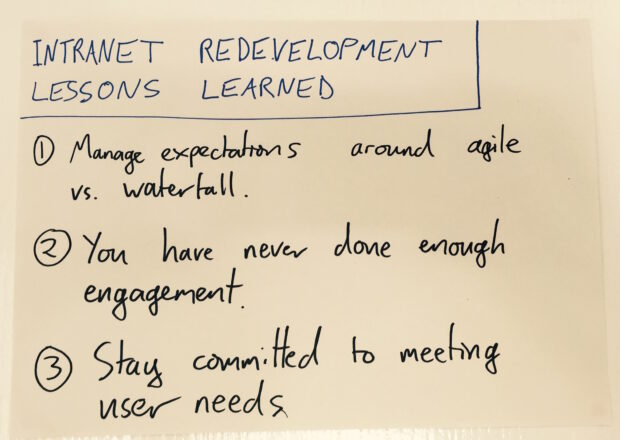 INTRANET REDEVELOPMENT
LESSONS LEARNED
① Manage expectations around agile
vs. waterfall.
② You have never done enough
engagement.
③ Stay committed to meeting
user needs